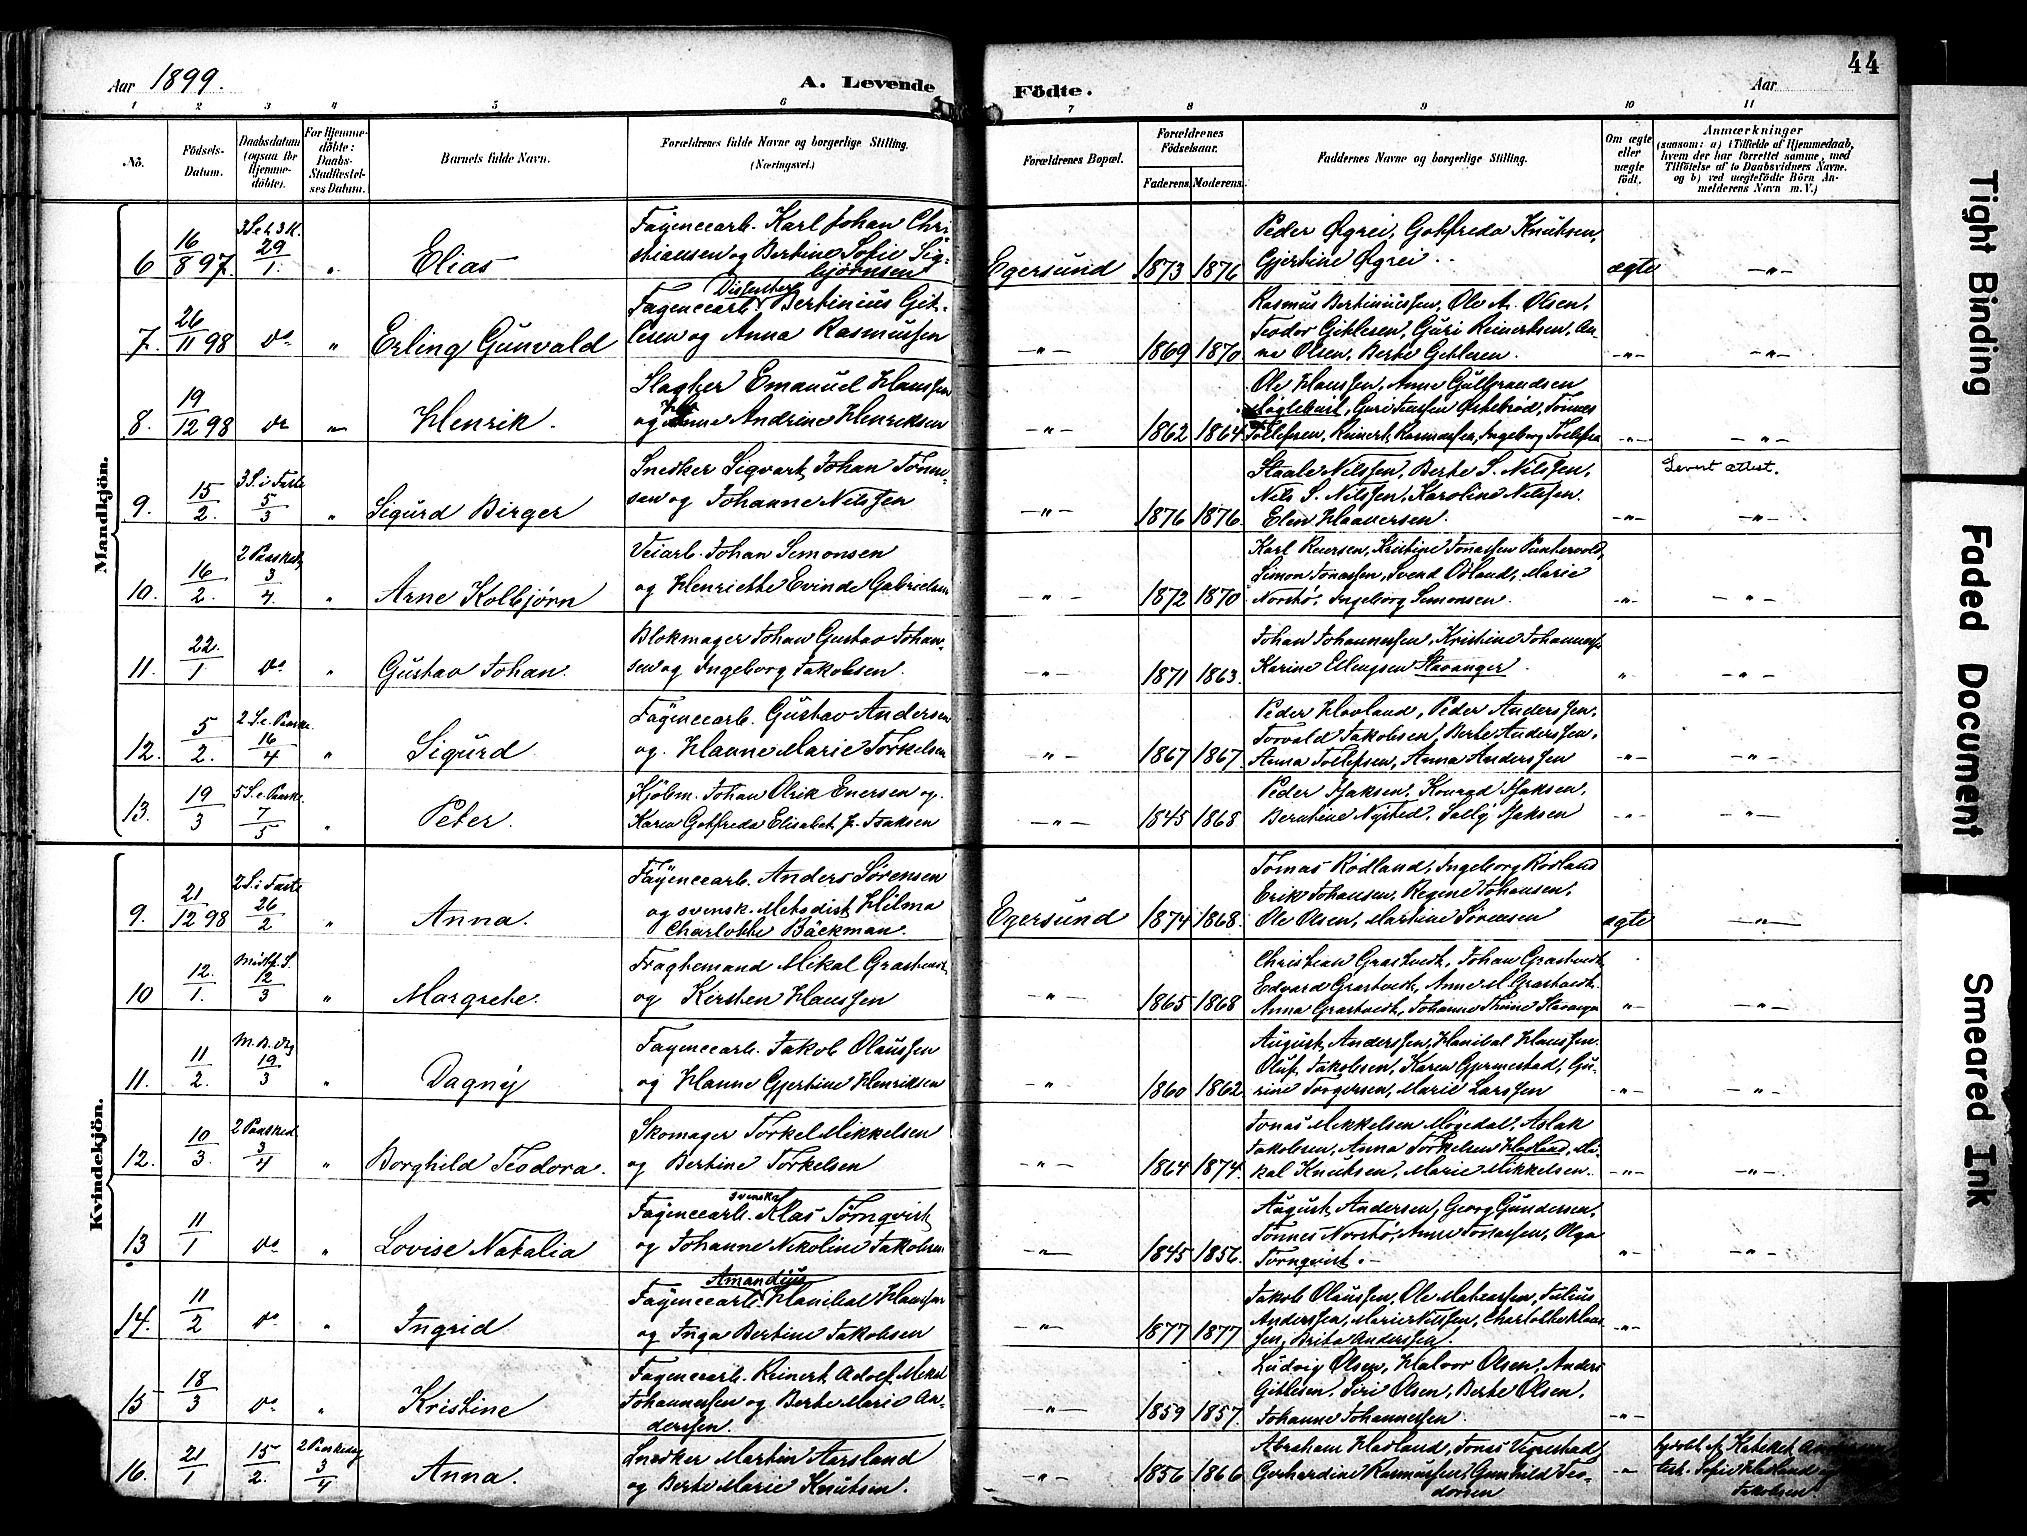 Aar 1899.
A. Levende Födte.
Aar
44
1 2 3 4 5 6 7 8 9 10 11
Nô.
Födsels-Datum.
Daabsdatum (ogsaa for Hjemmedöbte).
For Hjemmedöbte: Daabs-Stadfæstelses Datum.
Barnets fulde Navn.
Forældrenes fulde Navne og borgerlige Stilling. (Næringsvei.)
Forældrenes Bopæl.
Forældrenes Födselsaar.
Faderens. Moderens.
Faddernes Navne og borgerlige Stilling.
Om ægte eller uægte födt.
Anmærkninger (saasom: a) i Tilfælde af Hjemmedaab, hvem der har forrettet samme, med Tilföielse af to Daabsvidners Navne. og b) ved uægtefödte Börn Anmelderens Navn m. V.)
Mandkjön.
6 16/8 97. 3 S. e. h. 3 K. 29/1. " Elias
Fayencearb. Karl Johan Christiansen og Bertine Sofie Sigbjørnsen
Egersund 1873 1876
Peder Øgrei, Gotfreda Knutsen,
Gjertine Øgrei ægte -"-
7. 26/11 98 do " Erling Gunvald
Fayencearb. Dissenter Bertinius Gitlesen og Anna Rasmussen
-"- 1869 1870
Rasmus Bertiniussen, Ole A. Olsen,
Teodor Gitlesen, Guri Reinertsen, Anna Olsen, Berte Gitlesen. -"- -"-
8. 19/12 98 do " Henrik.
Slagter Emanuel Hanssen
og Andrine Henriksen
-"- 1862 1864
Ole Hanssen, Anne Gulbrandsen
Guri Tenssen Ørtebrød, Tønnes
Tollefsen, Reinert Rasmussen, Ingeborg Tollefsen -"- -"-
9. 15/2. 3 S. i Faste 5/3 " Sigurd Birger
Snedker Sigvart Johan Tønnesen og Johanne Nilssen
-"- 1876 1876.
Staale Nilssen, Berte S. Nilssen,
Nils S. Nilssen, Karoline Nilssen.
Elen Haaversen. -"- -"-
Levert attest.
10. 16/2. 2 Paaskedg 3/4. " Arne Kolbjørn
Veiarb. Johan Simonsen
og Henriette Evinde Gabrielsen
-"- 1872 1870
Karl Reiersen, Kristine Jonassen Puntervold,
Simon Jonassen, Svend Ødland, Marie
Norstø, Ingeborg Simonsen. -"- -"-
11. 22./1 do " Gustav Johan.
Blokmager Johan Gustav Johansen og Ingeborg Jakobsen.
-"- 1871 1863.
Johan Johannessen, Kristine Johannessen
Karine Ellengsen Stavanger. " -"-
12. 5/2. 2 S. e. Paaske. 16/4 " Sigurd
Fayencearb. Gustav Andersen
og. Hanne Marie Torkelsen
-"- 1867 1867
Peder Hovland, Peder Anderssen,
Torvald Jakobsen, Berte Anderssen,
Anna Tollefsen, Anna Anderssen -"- -"-
13. 19/3 5 S. e. Paaske. 7/5 " Peter.
Kjøbm. Johan Olrik Enersen og.
Karen Gotfreda Elisabet, f. Isaksen
-"- 1845 1868
Peder Isaksen, Konrad Isaksen,
Berntine Nysted, Sally Isaksen -"- -"-
Kvindekjön.
9. 21/12 98 2 S. i Faste 26/2 " Anna.
Fayencearb. Anders Sørensen
og svensk. Metodist Hilma
Charlotte Bäckman.
Egersund 1874 1868.
Tomas Rødland, Ingeborg Rødland
Erik Johansen, Regine Johansen,
Ole Olsen, Martine Sørensen ægte -"-
10 12./1. Midtf. S. 12/3 " Margrete.
Fragtemand Mikal Grastveit
og Kirsten Hanssen
-"- 1865 1868
Christian Grastvedt, Johan Grastvedt,
Edvard Grastvedt, Anne M. Grastvedt.
Anna Grastvedt, Johanne Thime Stavanger " -"-
11. 11/2. M. B. Dg 19/3 " Dagny
Fayencearb. Jakob Olaussen
og Hanne Gjertine Henriksen
-"- 1860 1862
August Anderssen, Hanibal Hanssen.
Oluf Jakobsen, Karen Gjermestad, Gurine Torgersen, Marie Larssen -"- -"-
12. 10/3. 2 Paasked. 3/4 " Borghild Teodora.
Skomager Torkel Mikkelsen
og Bertine Torkelsen
-"- 1864 1874.
Jonas Mikkelsen Møgedal, Aslak
Jakobsen, Anna Torkelsen Hadland, Mikal Knutsen, Marie Mikkelsen. -"- -"-
13 11/1 do " Lovise Natalia
Fayencearb. svenske Klas Tørnqvist
og Johanne Nikoline Jakobsen
-"- 1845 1856.
August Andersen, Georg Gundersen,
Tønnes Norstø, Anne Jonassen, Olga
Tørnqvist. - " -"-
14. 11/2 do " Ingrid
Fayencearb. Amandius Hanibal Hanssen
og Inga Bertine Jakobsen
-"- 1877 1877
Jakob Olaussen, Ole Mateassen, Julius
Anderssen, Marie Nilssen, Charlotte Klaussen, Brita Anderssen. -"-
15 18/3 do " Kristine
Fayencearb. Reinert Adolf Mikal
Johannessen og Berte Marie Anderssen.
-"- 1859 1857.
Ludvig Olsen, Halvor Olsen, Anders
Gitlesen, Siri Olsen, Berte Olsen,
Johanne Johannessen. -"-
16. 21/1 15/2. 2 Paaskedag 3/4 Anna.
Snedker Martin Aarsland
og Berte Marie Knutsen.
-"- 1856 1866
Abraham Hadland, Jonas Vigrestad,
Gerhardine Rasmussen, Gunhild Teodorsen -"-
hjdøbt af Kateket Andersen
test. Sofie Hadland og
Jakobsen.
Tight Binding
Faded Document
Smeared Ink